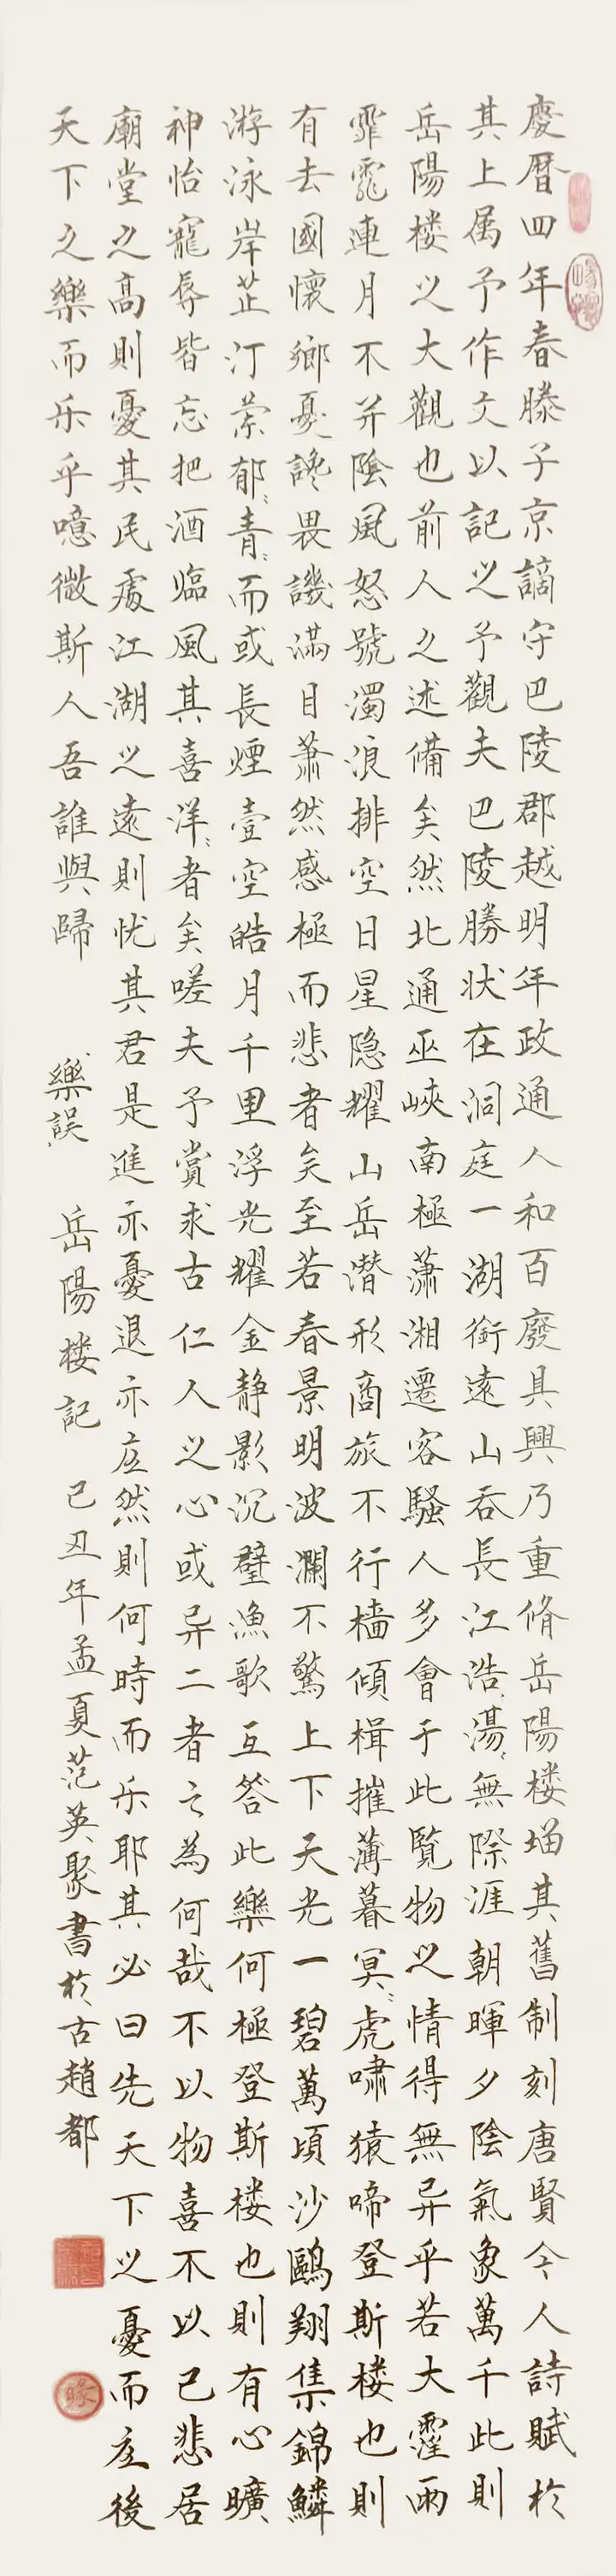 慶曆四年春滕子京謫守巴陵郡越明年政通人和百廢具興乃重脩岳陽楼增其舊制刻唐賢今人詩賦於
其上属予作文以記之予觀夫巴陵勝状在洞庭一湖銜遠山吞長江浩〻湯〻無際涯朝暉夕陰氣象萬千此則
岳陽楼之大觀也前人之述備矣然北通巫峽南極瀟湘遷客騷人多會于此覧物之情得無异乎若夫霪雨
霏霏連月不开陰風怒號濁浪排空日星隐耀山岳潜形商旅不行檣傾楫摧薄暮冥〻虎嘯猿啼登斯楼也則
有去國懷鄉憂讒畏譏滿目蕭然感極而悲者矣至若春景明波瀾不驚上下天光一碧萬頃沙鷗翔集錦鱗
游泳岸芷汀蘭郁〻青〻而或長煙壹空皓月千里浮光耀金静影沉璧漁歌互答此樂何極登斯楼也則有心曠
神怡寵辱皆忘把酒臨風其喜洋〻者矣嗟夫予嘗求古仁人之心或异二者之為何哉不以物喜不以己悲居
廟堂之高則憂其民處江湖之遠則忧其君是進亦憂退亦应然則何時而乐耶其必曰先天下之憂而应後
天下之樂而乐乎噫微斯人吾誰與歸 樂誤 岳陽楼記 己丑年孟夏范英聚書於古趙都